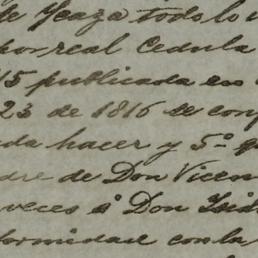 de Icaza todo lo
por real Cedula
15 publicada en
23 de 1816 se con
da hacer y 5º q
dre de Don Vicen
veces á Don Isid
formidad con la